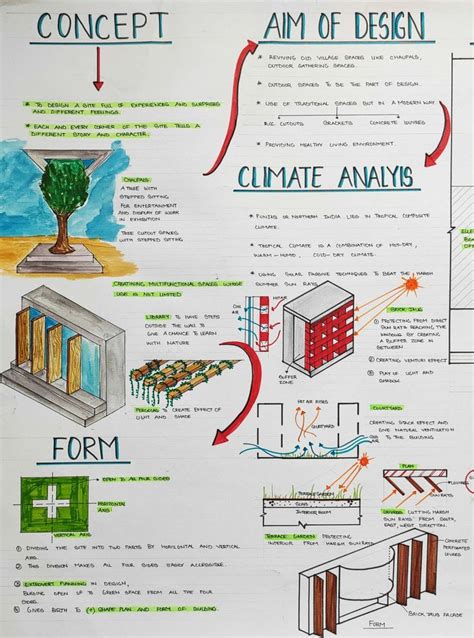 CONCEPT
* TO DESIGN A SITE FULL OF EXPERIENCES AND SURPRISES
AND DIFFERENT FEELINGS.
* EACH AND EVERY CORNER OF THE SITE TELLS A
DIFFERENT STORY AND CHARACTER.
CHAUPALS
A TREE WITH
STEPPED SITTING
FOR ENTERTAINMENT
AND DISPLAY OF WORK
IN EXHIBITION
TREE CUTOUT SPACES
WITH STEPPED SITTING
CREATINING MULTIFUNCTIONAL SPACES WHOSE
USE IS NOT LIMITED
LIBRARY TO HAVE STEPS
OUTSIDE THE WALL TO
GIVE A CHANCE TO LEARN
WITH NATURE
PERGOLAS TO CREATE EFFECT OF
LIGHT AND SHADE
FORM
OPEN TO ALL FOUR SIDES
HORIZONTAL
AXIS
VERTICAL AXIS
① DIVIDING THE SITE INTO TWO PARTS BY HORIZONTAL AND VERTICAL
AXIS.
② THIS DIVISION MAKES ALL FOUR SIDES EASILY ACCESSIBLE.
③ EXTROVERT PLANNING IN DESIGN,
BUILDING OPEN UP TO GREEN SPACE FROM ALL THE FOUR
SIDES.
④ GIVES BIRTH TO (+) SHAPE PLAN AND FORM OF BUILDING.
AIM OF DESIGN
* REVIVING OLD VILLAGE SPACES LIKE CHAUPALS,
OUTDOOR GATHERING SPACES.
* OUTDOOR SPACES TO BE THE PART OF DESIGN.
* USE OF TRADITIONAL SPACES BUT IN A MODERN WAY
R.C.C. CUTOUTS BRACKETS CONCRETE LOUVRES
* PROVIDING HEALTHY LIVING ENVIRONMENT.
CLIMATE ANALYIS
* PUNJAB OR NORTHERN INDIA LIES IN TROPICAL COMPOSITE
CLIMATE.
* TROPICAL CLIMATE IS A COMBINATION OF HOT-DRY,
WARM-HUMID, COLD-DRY CLIMATE.
* USING SOLAR PASSIVE TECHNIQUES TO BEAT THE HARSH
SUMMER SUN RAYS.
HOT AIR
AIR
BUFFER
ZONE
BRICK JALIS
① PROTECTING FROM DIRECT
SUN RAYS REACHING THE
WINDOWS BY CREATING
A BUFFER ZONE IN
BETWEEN
② CREATING VENTURI EFFECT
③ PLAY OF LIGHT AND
SHADOW
HOT AIR RISES
COURTYARD
COURTYARD
CREATING STACK EFFECT AND
GIVE NATURAL VENTILATION
TO THE BUILDING
TERRACE GARDEN
SLAB
INTERIOR ROOM
TERRACE GARDEN PROTECTING
INTERIOR FROM HARSH SUN RAYS
PLAN
LOUVRES
SUN RAYS
LOUVRES CUTTING HARSH
SUN RAYS FROM SOUTH,
EAST, WEST DIRECTION.
CONCRETE
PERFORATED
LOUVRES
BRICK TILES FACADE
FORM